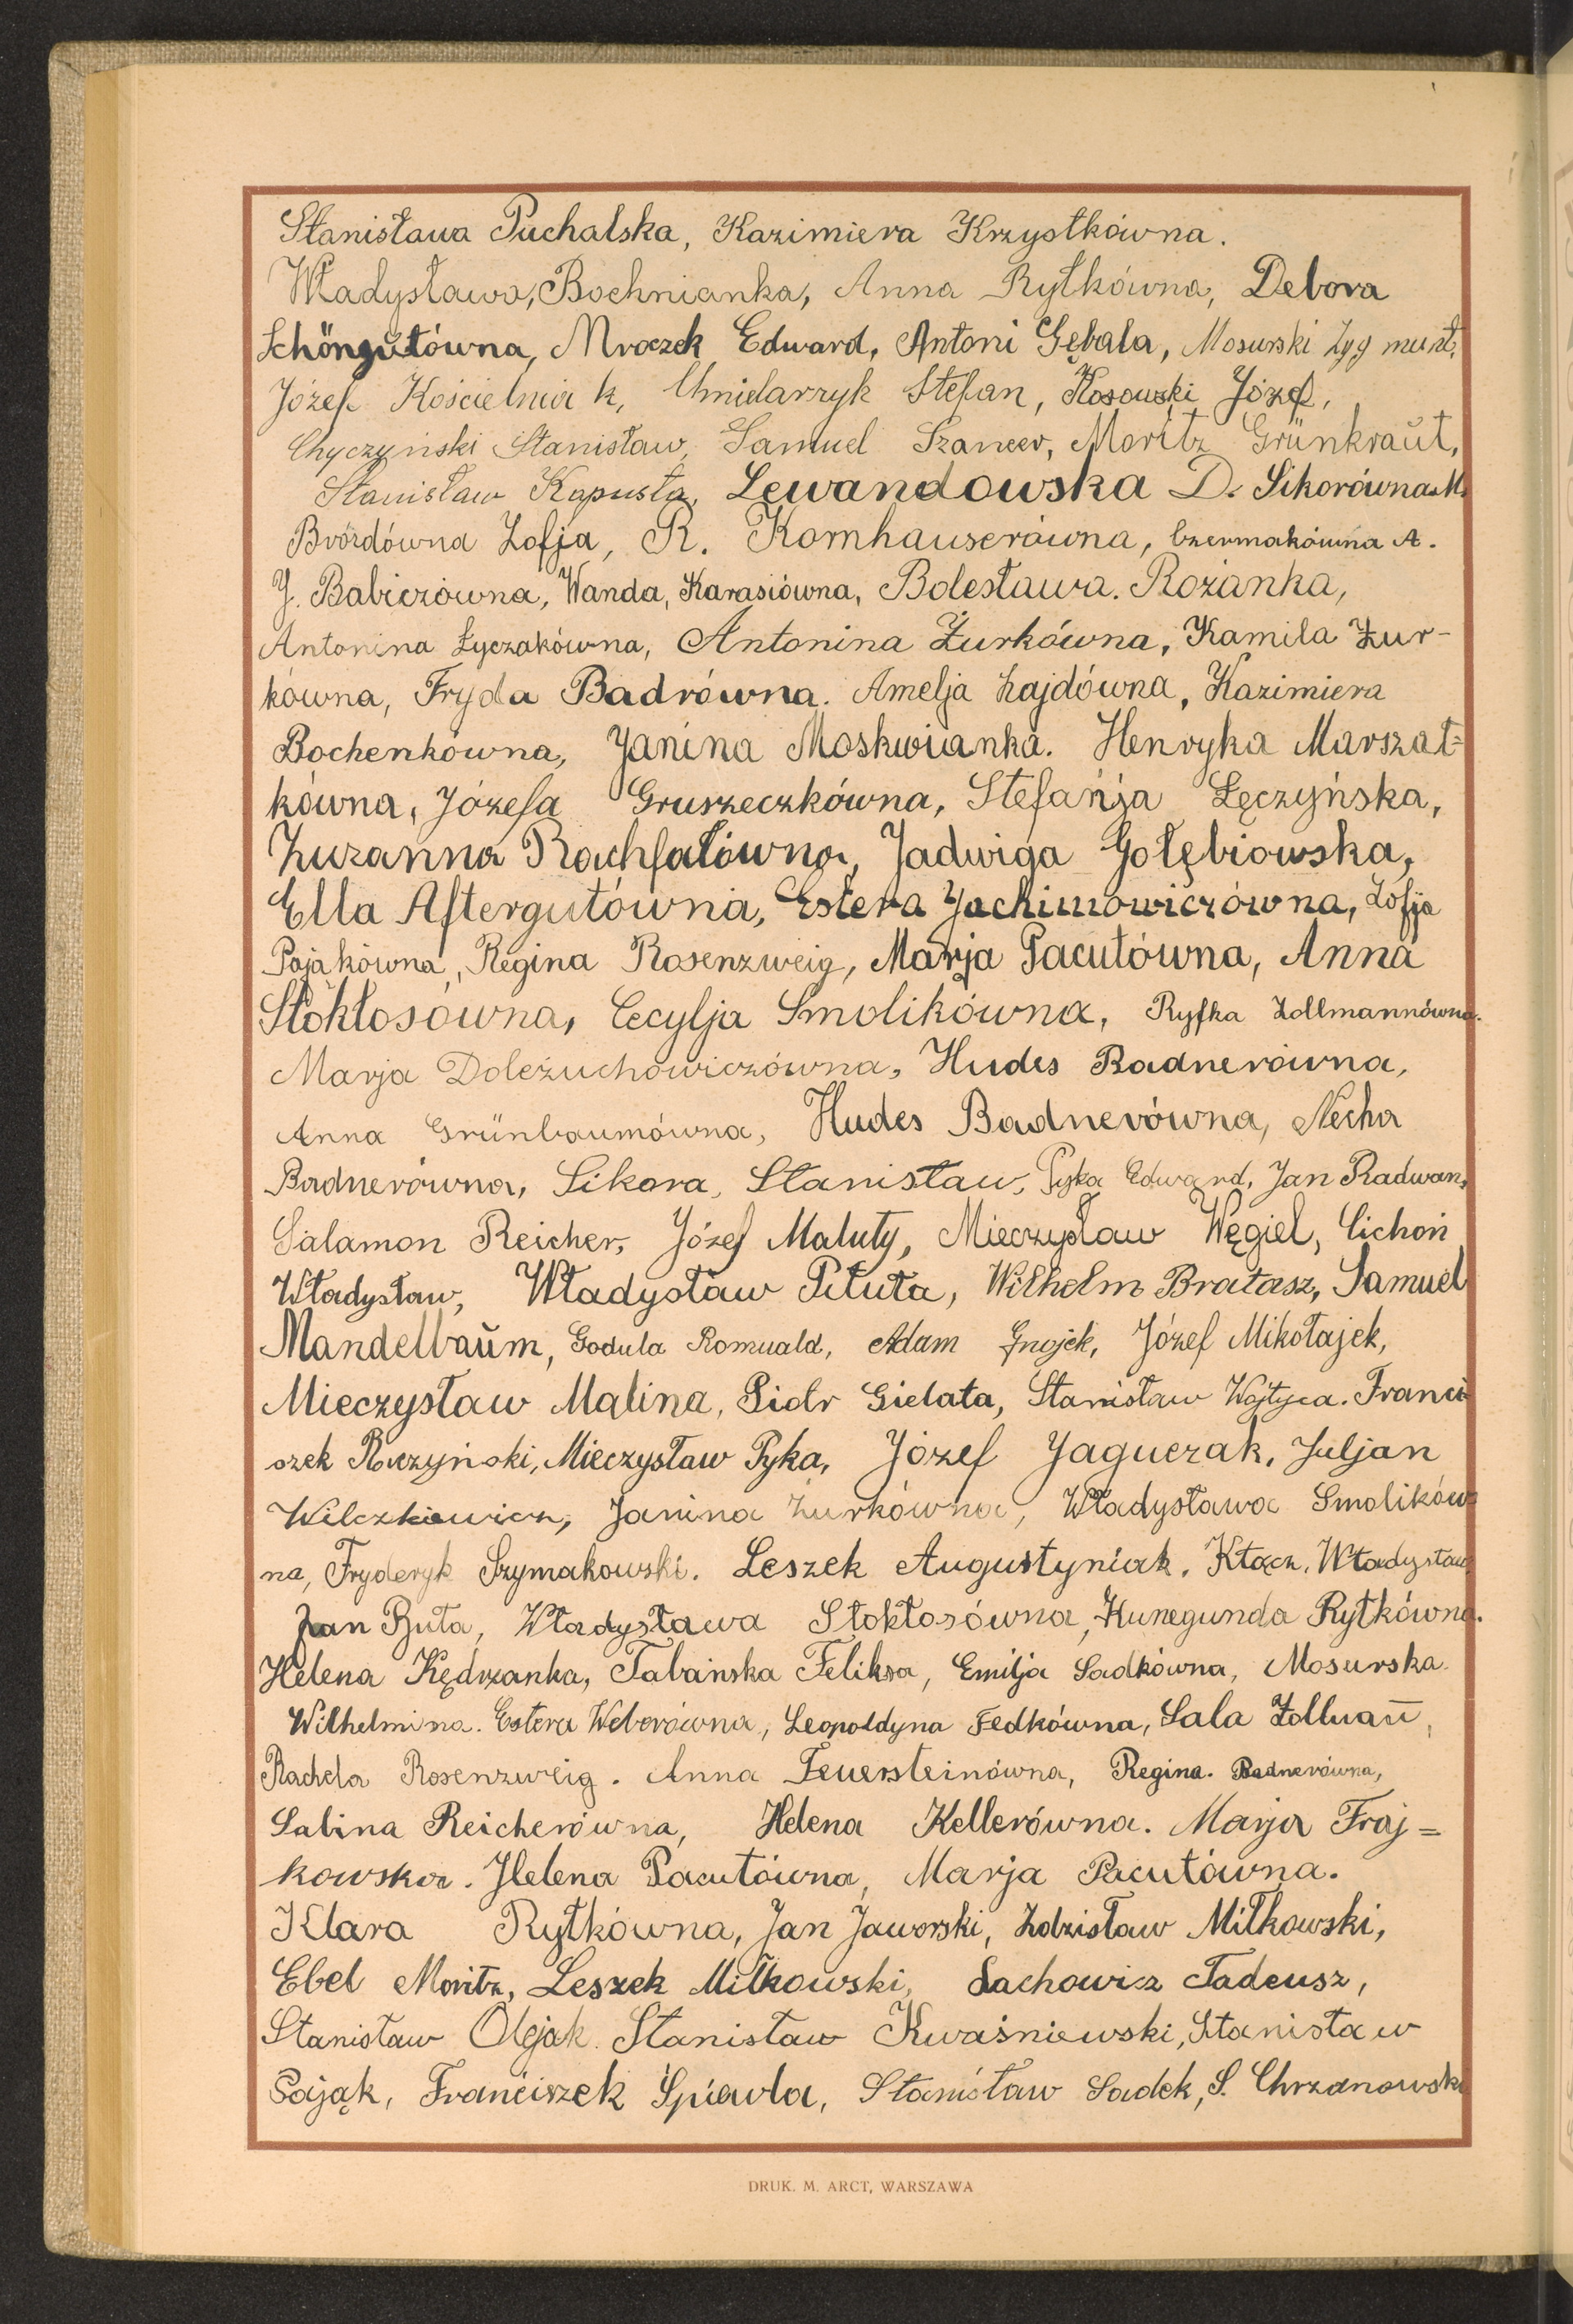 Stanisława Puchalska, Kazimiera Krzystkówna.
Władysława, Bochnianka, Anna Rytkówna, Debora
Schöngutówna, Mroczek Edward, Antoni Gębala, Mosurski Zyg munt,
Józef Kościelnia k, Chmielarzyk Stefan, Kosowski Józef,
Chyczyński Stanisław, Samuel Szancer, Moritz Grünkraŭt,
Stanisław Kapusta, Lewandowska D. Sikorówna M.
Bvózdówna Zofja, R. Kornhauserówna, Czermakówna A.
J. Babiczówna, Wanda, Karasiówna, Bolesława. Rożanka,
Antonina Łyczakówna, Antonina Żurkówna, Kamila Żur-
kówna, Fryda Badrówna. Amelja Zajdówna, Kazimiera
Bochenkówna, Janina Moskwianka. Henryka Marszał=
kówna, Józefa Gruszeczkówna, Stefanja Łęczyńska,
Zuzanna Rachfałówna, Jadwiga Gołębiowska,
Ella Aftergutówna, Estera Jachimowiczówna, Zofja
Pająkówna, Regina Rosenzweig, Marja Pacutówna, Anna
Stokłosówna, Cecylja Smolikówna, Ryfka Zollmannówna.
Marja Doleżuchowiczówna, Hudes Badnerówna,
Anna Grünbaumówna, Hudes Badnerówna, Necha
Badnerówna, Sikora, Stanisław, Pyka Edward, Jan Radwan,
Salamon Reicher, Józef Maluty, Mieczysław Węgiel, Cichoń
Władysław, Władysław Pituła, Wilhelm Bratasz, Samuel
Mandelbaŭm, Godula Romuald, Adam Gnojek, Józef Mikołajek,
Mieczysław Malina, Piotr Gielata, Stanisław Wojtyca. Franci
szek Ryczyński, Mieczysław Pyka, Józef Jaguczak, Juljan
Wilczkiewicz, Janina Żurkówna, Władysława Smolików=
na, Fryderyk Szymakowski. Leszek Augustyniak. Kłącz, Władysław,
Jan Buta, Władysława Stokłosówna, Kunegunda Rytkówna.
Helena Kędrzanka, Tabańska Feliksa, Emilja Sadkówna, Mosurska
Wilhelmina. Estera Weberówna, Leopoldyna Fedkówna, Sala Zollman,
Rachela Rosenzweig. Anna Feuersteinówna, Regina. Badnerówna,
Sabina Reicherówna, Helena Kellerówna. Marja Fraj=
kowska. Helena Pacutówna, Marja Pacutówna.
Klara Rytkówna, Jan Jaworski, Zdzisław Miłkowski,
Ebel Moritz, Leszek Miłkowski, Lachowicz Tadeusz,
Stanisław Olejak. Stanisław Kwaśniewski, Stanisław
Pająk, Franciszek Śpiewla, Stanisław Sadek, S. Chrzanowski
DRUK. M. ARCT, WARSZAWA